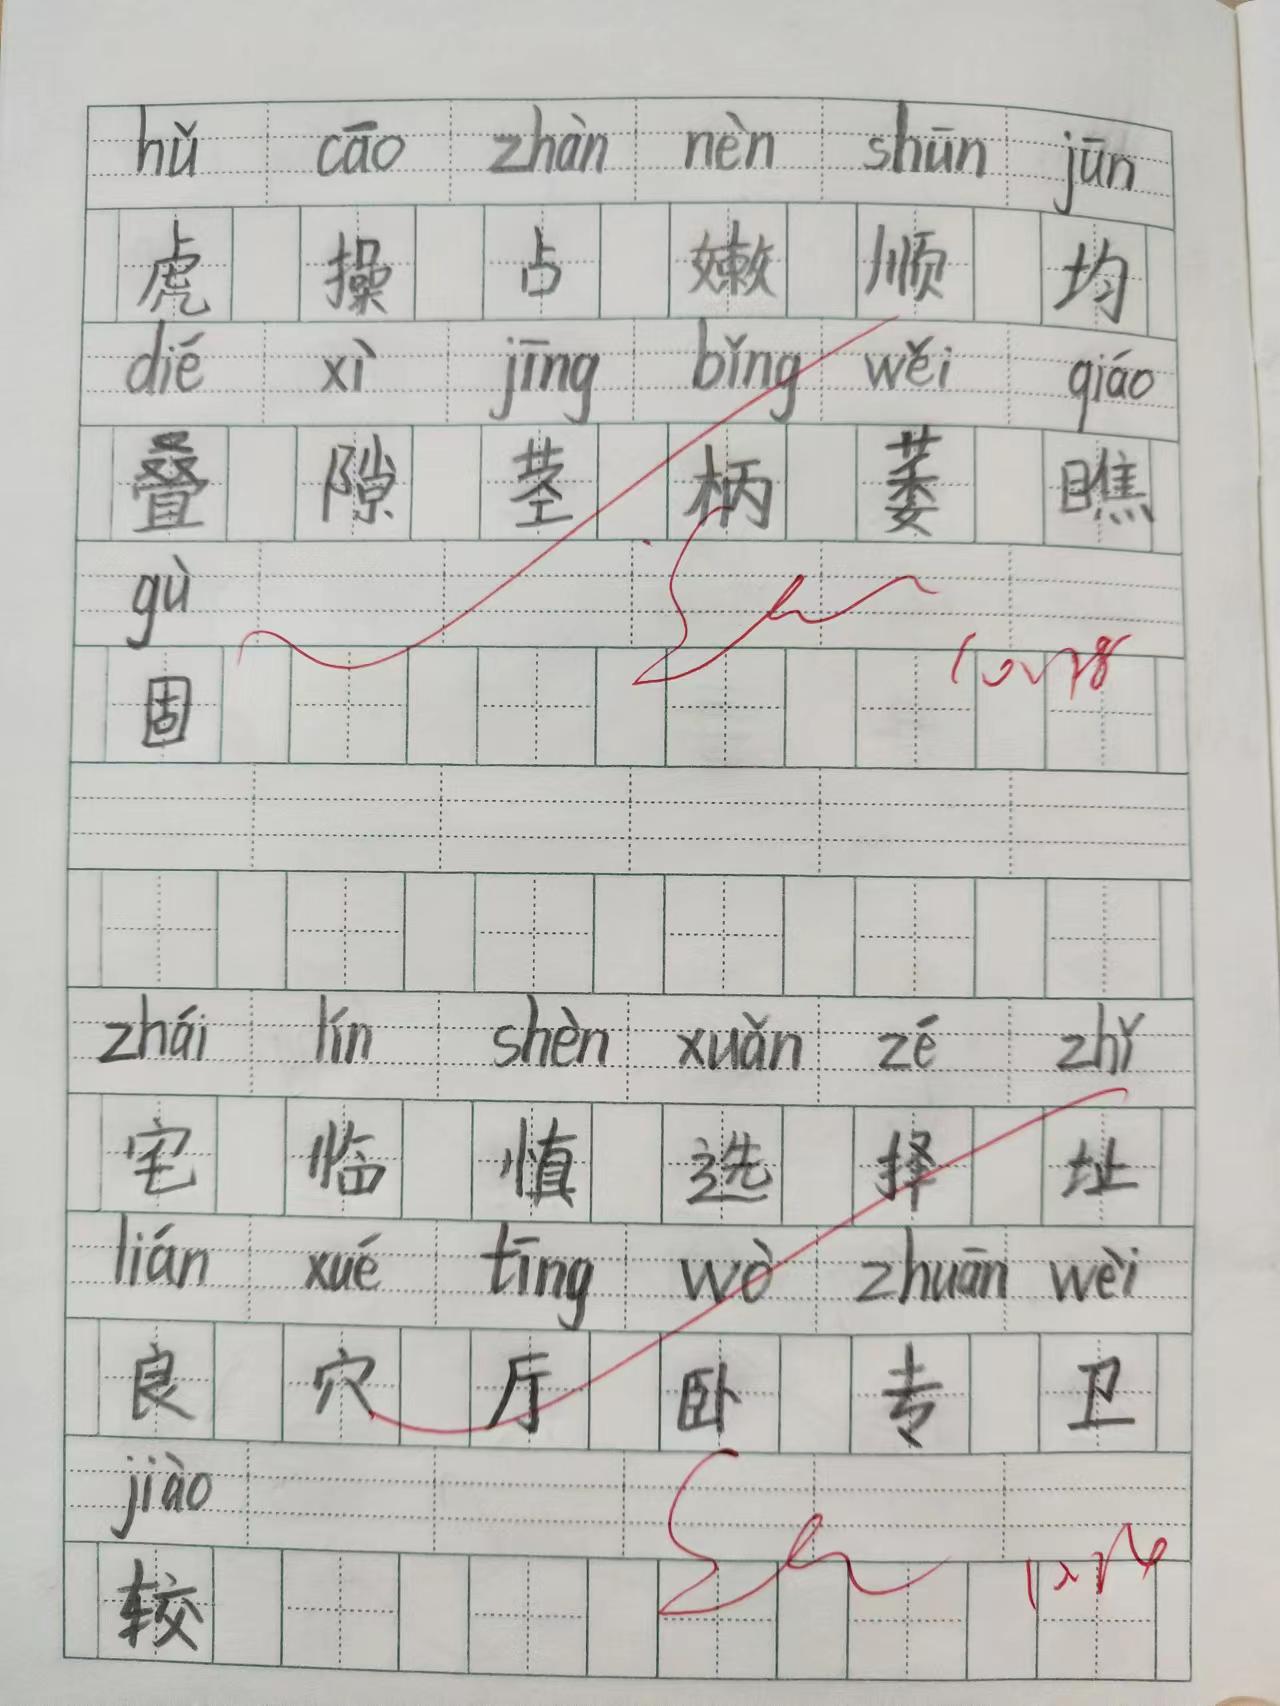 hǔ cāo zhàn nèn shūn jūn
虎 操 占 嫩 顺 均
dié xì jīng bǐng wěi qiáo
叠 隙 茎 柄 萎 瞧
gù
固
zhái lín shèn xuǎn zé zhǐ
宅 临 慎 选 择 址
lián xué tīng wò zhuān wèi
良 穴 厅 卧 专 卫
jiào
较